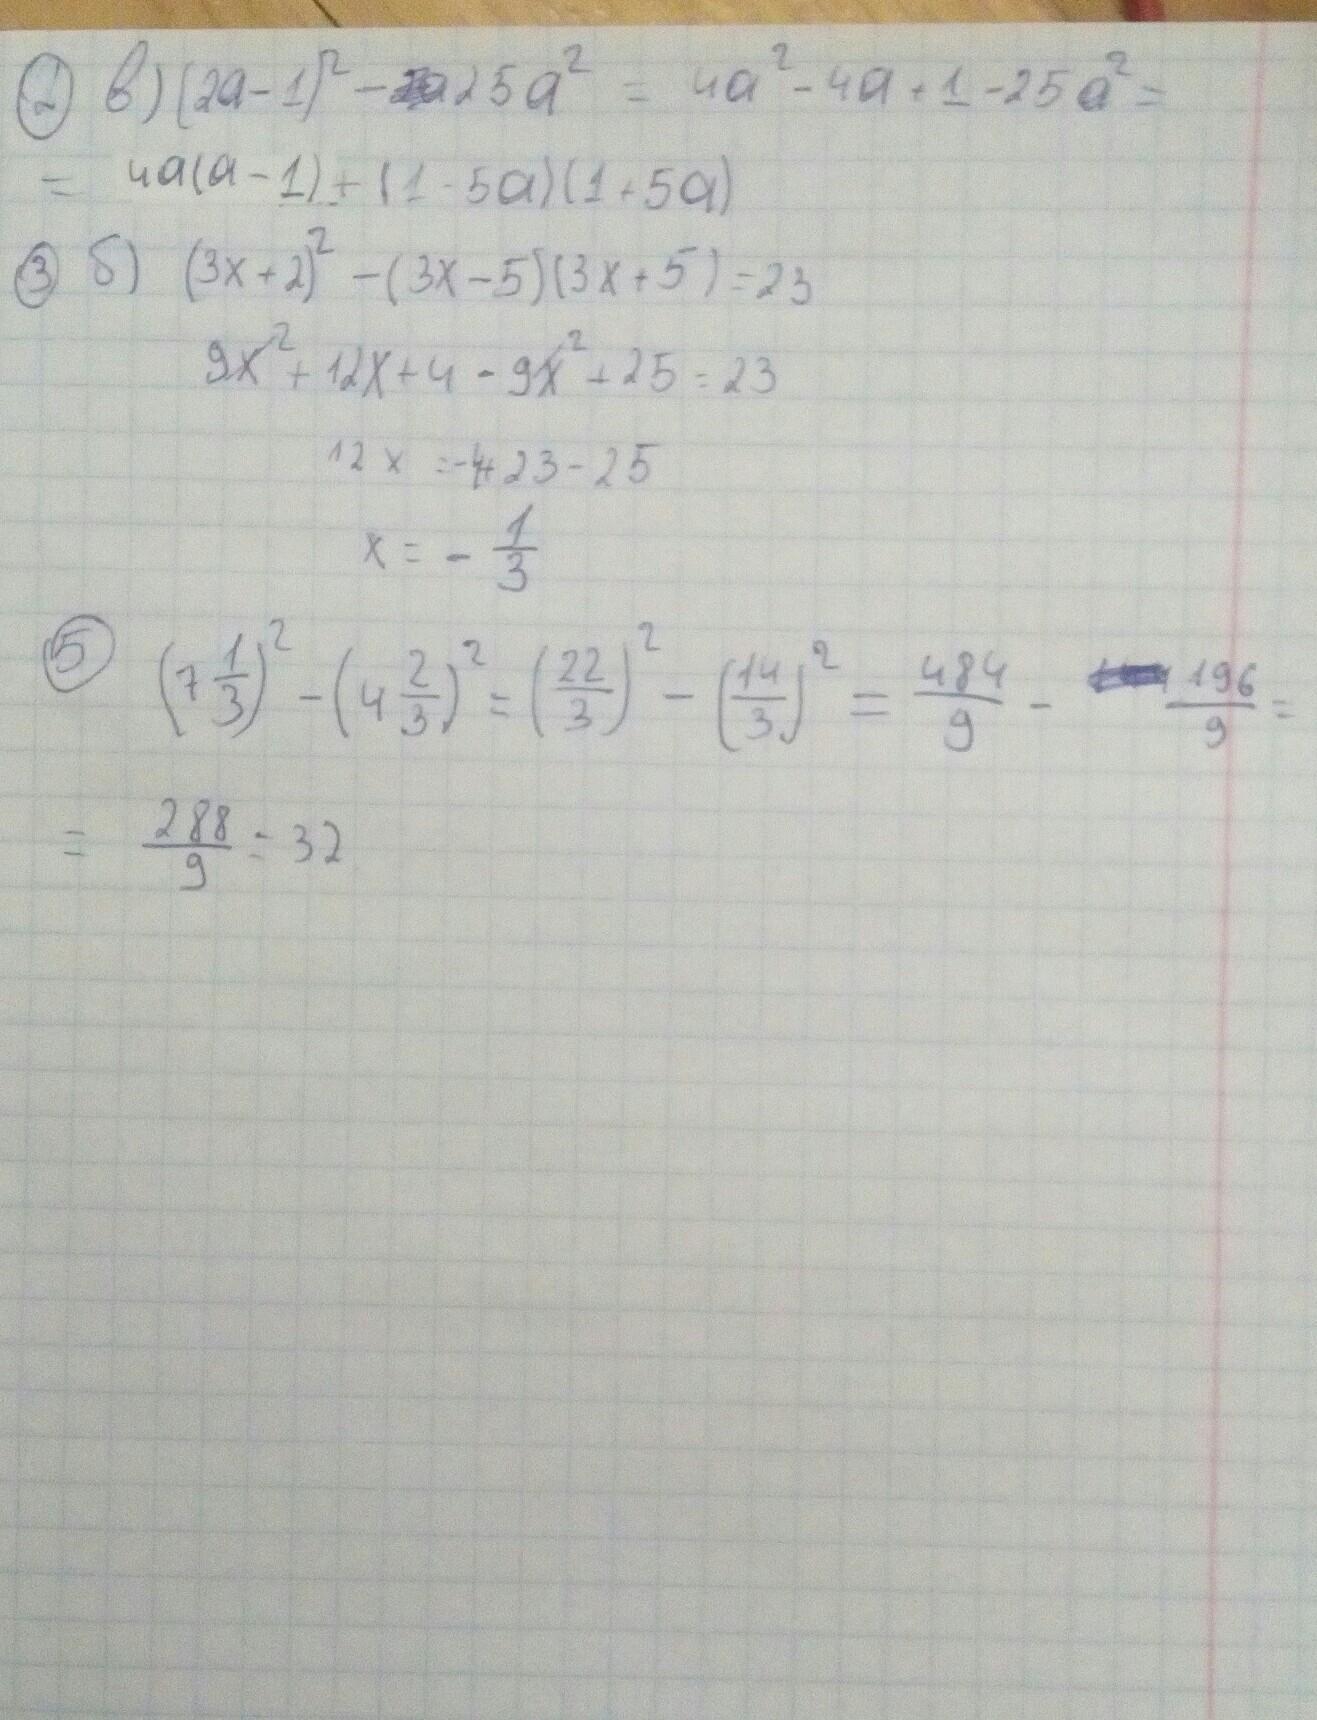 2 в) (2a-1)² - 25a² = 4a² - 4a + 1 - 25a² =
= 4a(a-1) + (1-5a)(1+5a)
3 б) (3x+2)² - (3x-5)(3x+5) = 23
9x² + 12x + 4 - 9x² + 25 = 23
12x = -4+23-25
x = - 1/3
5 (7 1/3)² - (4 2/3)² = (22/3)² - (14/3)² = 484/9 - 196/9 =
= 288/9 = 32